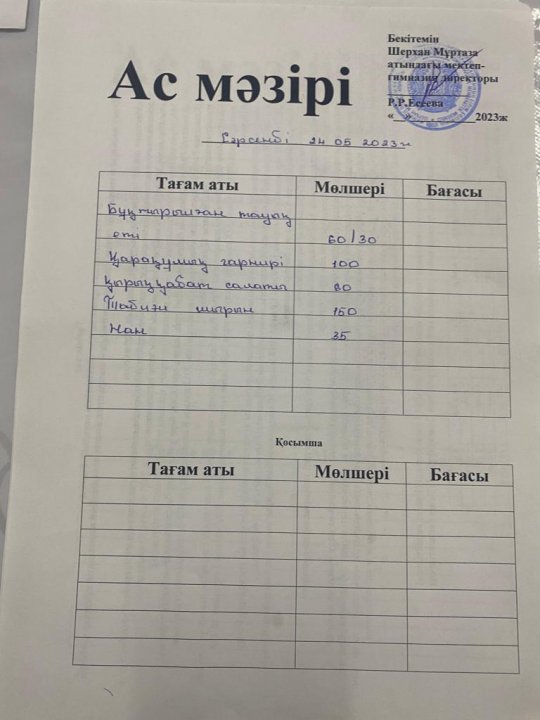 Бекітемін
Шерхан Мұртаза
атындағы мектеп-
гимназия директоры
Р.Р.Есеева
«__»__________2023ж
Ас мәзірі
Сәрсенбі 24 05 2023ж
Тағам аты Мөлшері Бағасы
Бұқтырылған тауық
еті 60/30
Қарақұмық гарнирі 100
Қырыққабат салаты 60
Табиғи шырын 150
Нан 35
Қосымша
Тағам аты Мөлшері Бағасы